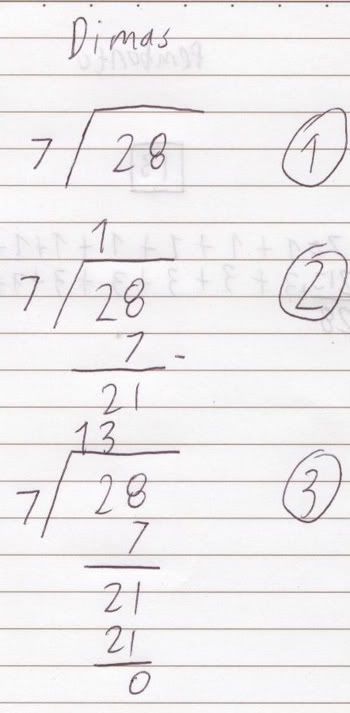 Dimas
7 28 1
1
7 28 2
7 -
21
13
7 28 3
7
21
21
0